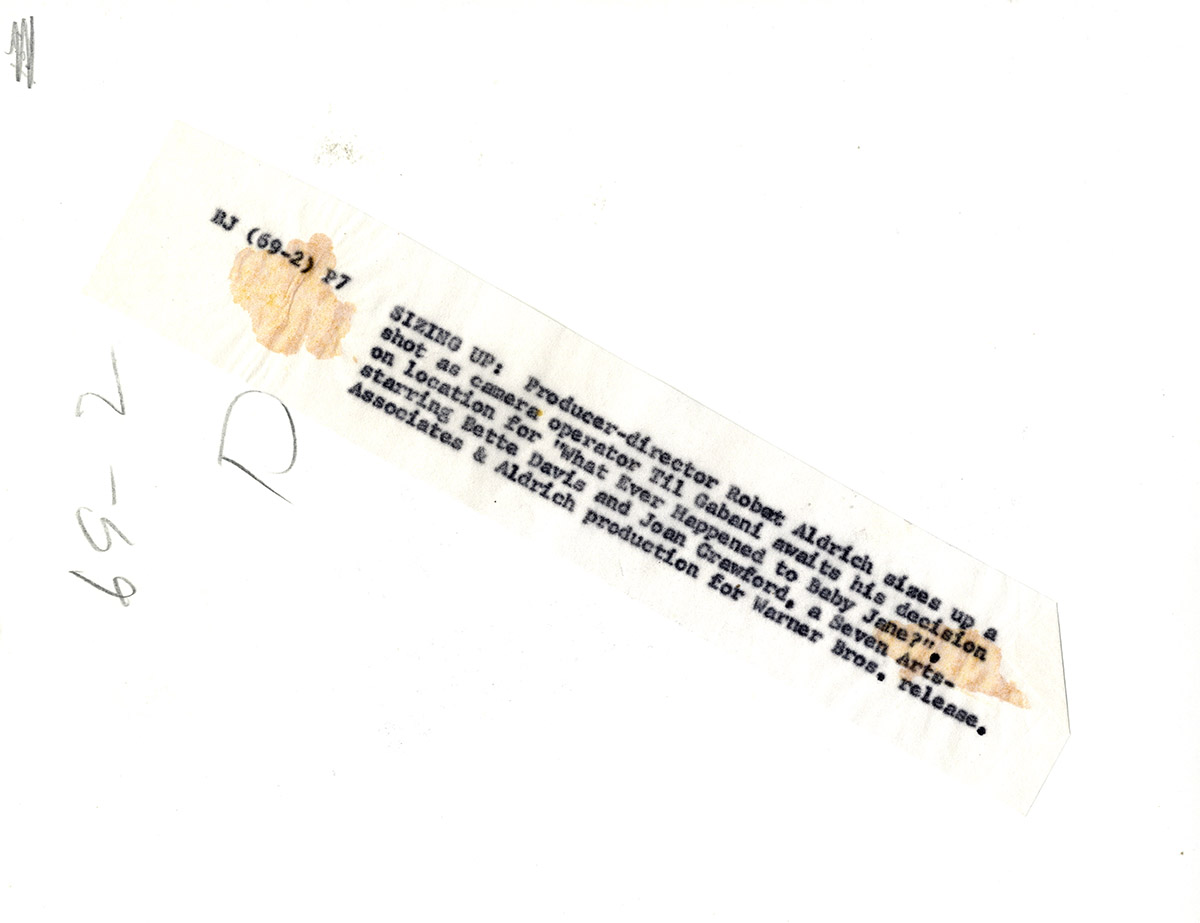 BJ (69-2) P7
SIZING UP: Producer-director Robet Aldrich sizes up a
shot as camera operator Til Gabani awaits his decision
on location for "What Ever Happened to Baby Jane?".
starring Bette Davis and Joan Crawford, a Seven Arts-
Associates & Aldrich production for Warner Bros. release.
69-2
D